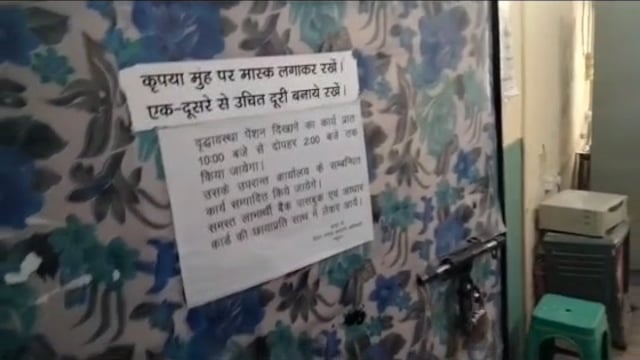 कृपया मुंह पर मास्क लगाकर रखें।
एक-दूसरे से उचित दूरी बनाये रखें।
वृद्धावस्था पेंशन दिखाने का कार्य प्रातः
10:00 बजे से दोपहर 2:00 बजे तक
किया जायेगा।
उसके उपरान्त कार्यालय के सम्बन्धित
कार्य सम्पादित किये जायेगे।
समस्त लाभार्थी बैंक पासबुक एवं आधार
कार्ड की छायाप्रति साथ में लेकर आयें।